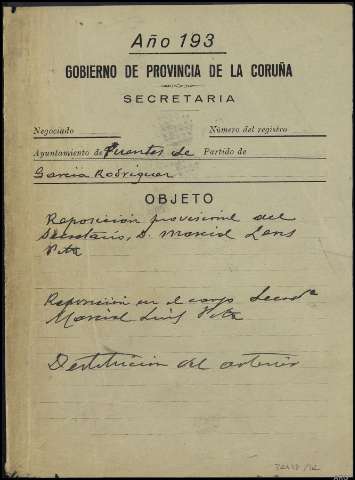 Año 193
GOBIERNO DE PROVINCIA DE LA CORUÑA
SECRETARIA
Negociado Número del registro
Ayuntamiento de Puentes de Partido de
Garcia Rodriguez
OBJETO
Reposición provisional del
Secretario, D. Marcial Lens
Pita
Reposición en el cargo Secret
Marcial Lens Pita
Destitución del anterior